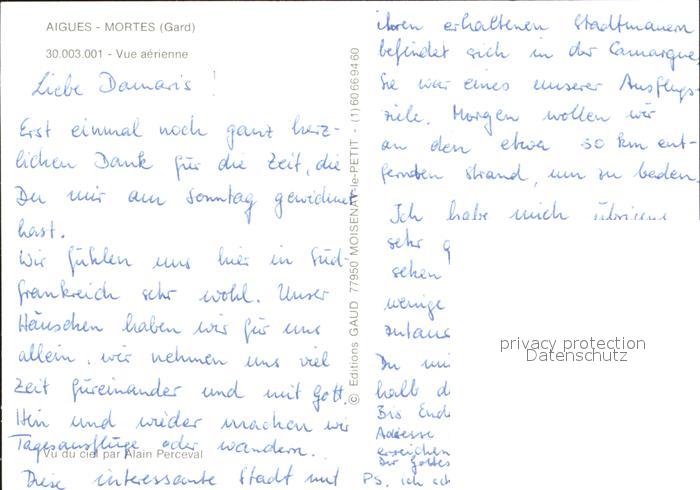 AIGUES - MORTES (Gard)
30.003.001 - Vue aérienne
Liebe Damaris!
Erst einmal noch ganz herz-
lichen Dank für die Zeit, die
Du mir am Sonntag gewidmet
hast.
Wir fühlen uns hier in Süd-
frankreich sehr wohl. Unser
Häuschen haben wir für uns
allein, wir nehmen uns viel
Zeit füreinander und mit Gott.
Hin und wieder machen wir
Tagesausflüge oder wandern.
Vu du ciel par Alain Perceval
Diese interessante Stadt mit
© Editions GAUD 77950 MOISENAY-le-PETIT - (1) 60 66 94 60
ihren erhaltenen Stadtmauern
befindet sich in der Camargue,
sie war eines unserer Ausflugs-
ziele. Morgen wollen wir
an den etwa 30 km ent-
fernten Strand, um zu baden.
Ich habe mich übrigens
sehr g
sehen
wenige
zutaus
Du mi
halb d
Bis End
Adresse
erreichen
Dir Gottes
PS. ich sch
privacy protection
Datenschutz